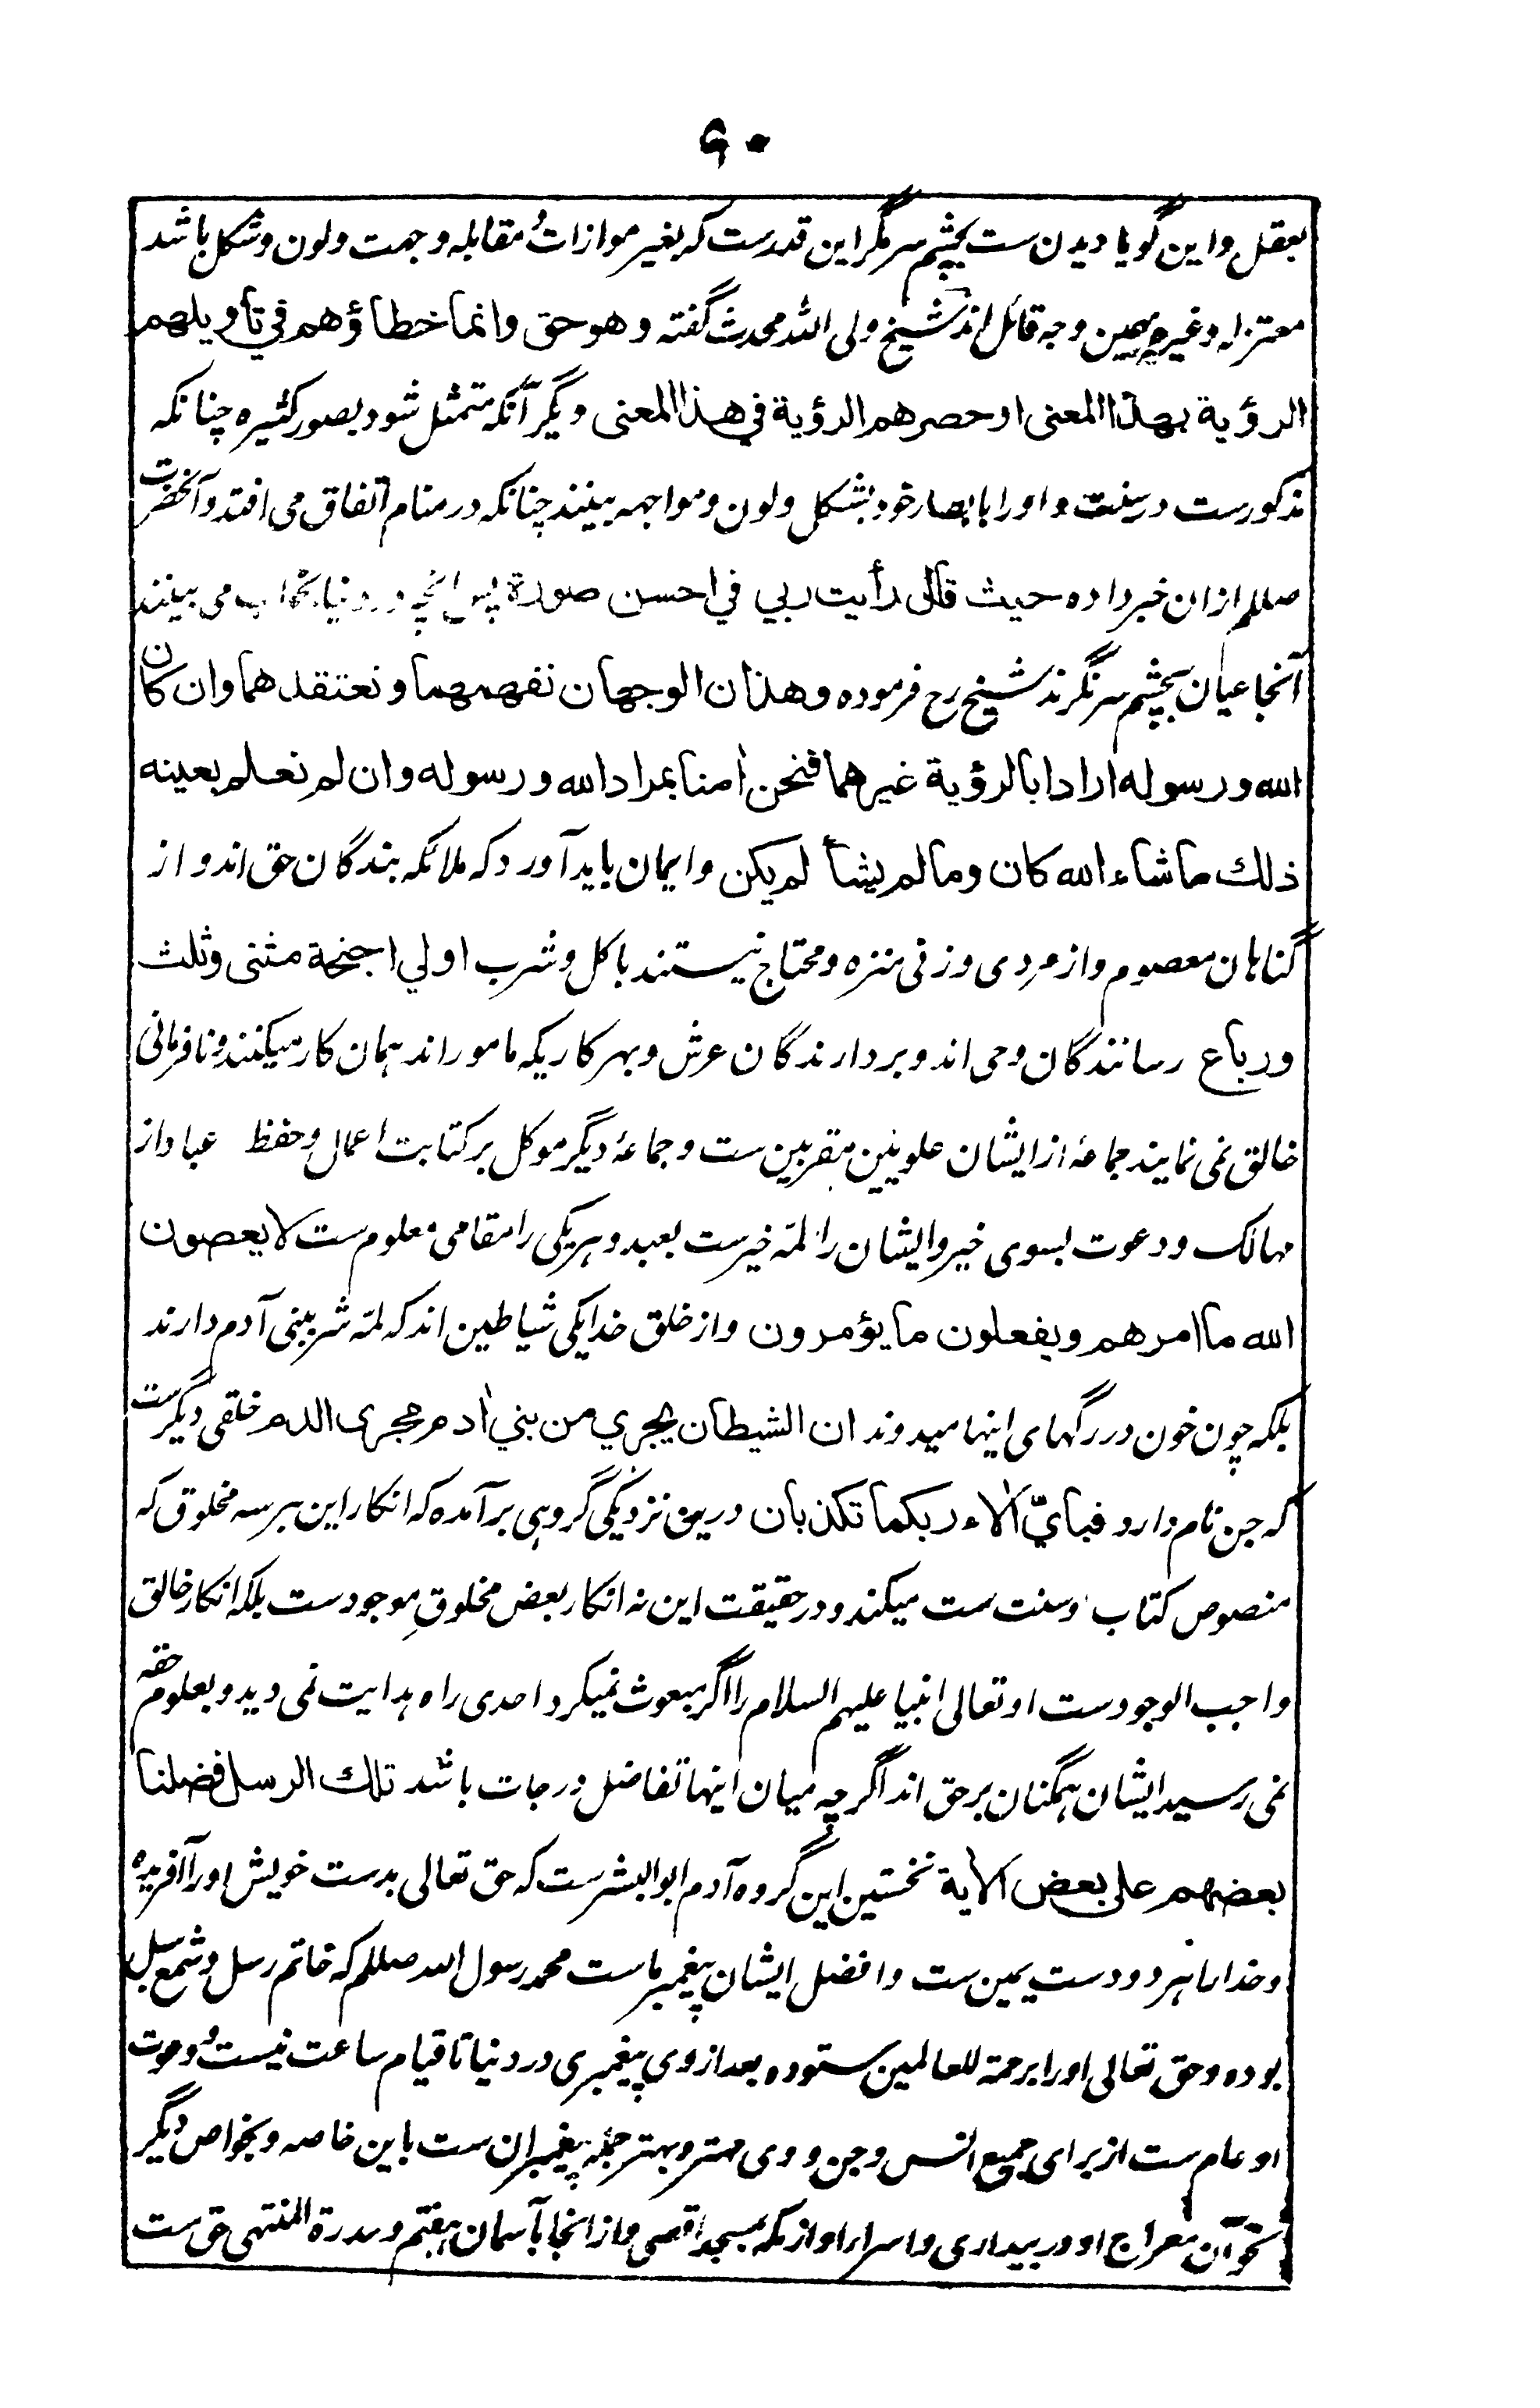 ۶۰
بعقل واین گویا دیدن ست بچشم سر مگر این قدرست که بغیر موازات و مقابله و جهت ولون و شکل باشد
معتزله وغیرهم بهمین وجه قائل اند شیخ ولی الله محدث گفته وهو حق وانما خطاؤهم في تأويلهم
الرؤية بهذا المعنى او حصرهم الرؤية في هذا المعنى دیگر آنکه متمثل شود بصور کثیره چنانکه
مذکورست در سنت و اورا بابصار خود بشکل ولون ومواجهه بینند چنانکه در منام اتفاق می افتد وآنحضرت
صللم ازان خبر داده حيث قال رأيت ربي في احسن صورة پس آنچه در دنیا بخواب می بینند
آنجا عیان بچشم سر نگرند شیخ رح فرموده وهذان الوجهان نفهمهما ونعتقدهما وان كان
الله ورسوله ارادا بالرؤية غيرهما فنحن أمنا بمراد الله ورسوله وان لم نعلم بعينه
ذلك ما شاء الله كان وما لم يشأ لم يكن وایمان باید آورد که ملائکه بندگان حق اند و از
گناهان معصوم واز مردی وزنی منزه ومحتاج نیستند باکل وشرب اولي اجنحة مثنى وثلث
ورباع رسانندگان وحی اند وبردارندگان عرش وبهر کاریکه مامور اند همان کار میکنند ونافرمانی
خالق نمی نمایند جماعۀ از ایشان علویین مقربین ست وجماعۀ دیگر موکل بر کتابت اعمال وحفظ عباد از
مهالک ودعوت بسوی خیر وایشان را لمّه خیرست بعبد وهر یکی را مقامی معلوم ست لا يعصون
الله ما امرهم ويفعلون ما يؤمرون واز خلق خدا یکی شیاطین اند که لمّه شر ببنی آدم دارند
بلکه چون خون در رگهای اینها میدوند ان الشيطان يجري من بني أدم مجرى الدم خلقی دیگرست
که جن نام دارد فبايّ ألاء ربكما تكذبان درین نزدیکی گروهی برآمده که انکار این هر سه مخلوق که
منصوص کتاب وسنت ست میکند ودرحقیقت این نه انکار بعض مخلوقِ موجودست بلکه انکار خالق
واجب الوجودست او تعالی انبیا علیهم السلام را اگر مبعوث نمیکرد احدی راه هدایت نمی دید وبعلوم حقه
نمی رسید ایشان همگنان برحق اند اگرچه میان اینها تفاضل درجات باشد تلك الرسل فضلنا
بعضهم على بعض الأية نخستین این گروه آدم ابوالبشرست که حق تعالی بدست خویش اورا آفریده
وخدا را هر دو دست یمین ست وافضل ایشان پیغمبر ماست محمد رسول الله صللم که خاتم رسل وشمع سبل
بوده وحق تعالی اورا برحمة للعالمین ستوده بعد از وی پیغمبری در دنیا تا قیام ساعت نیست ودعوت
او عام ست از برای جمیع انس وجن و وی مهتر وبهتر جمله پیغمبران ست باین خاصه وبخواص دیگر
نحو آن معراج او در بیداری واسراء او از مکه بمسجد اقصی واز انجا بآسمان هفتم وسدرة المنتهی حق ست